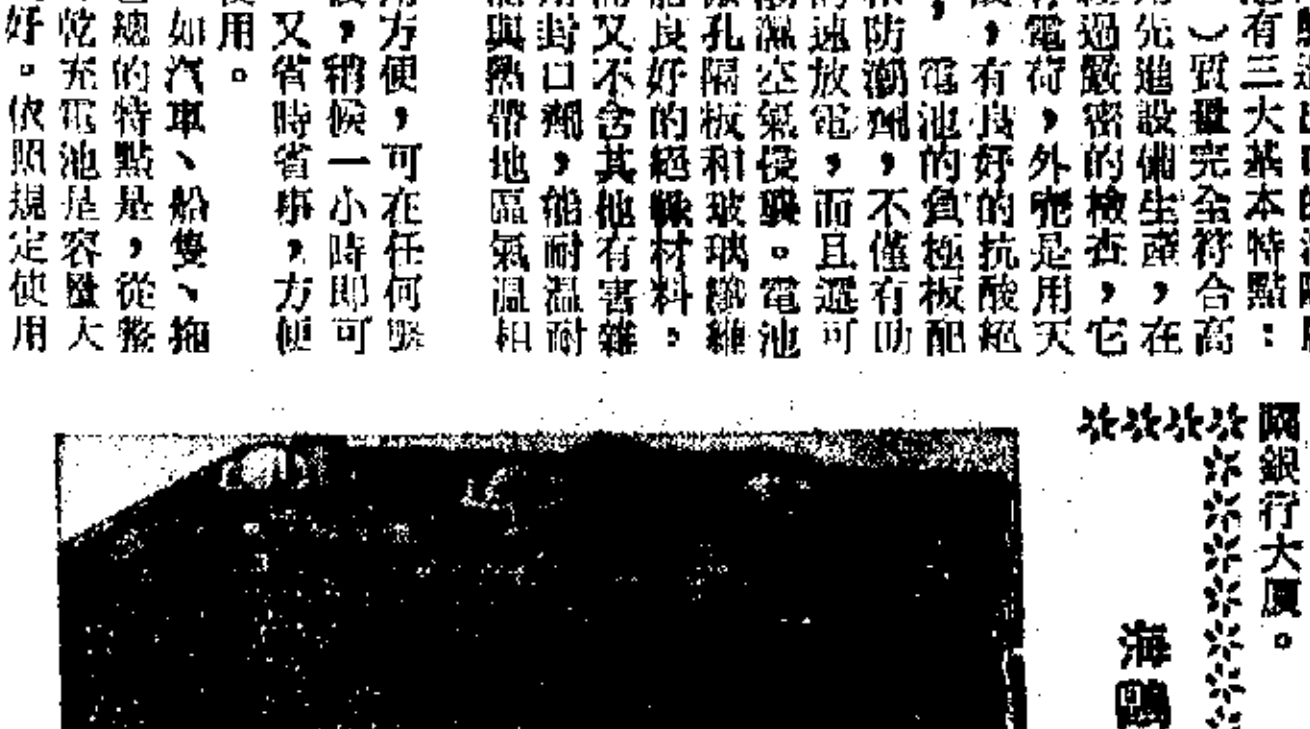 有三大基本特點：
）質量完全符合高
先進設備生產，在
過嚴密的檢查，它
電荷，外殼是用天
，有良好的抗酸絕
，電池的負極板配
和防潮劑，不僅有助
速放電，而且還可
潮濕空氣侵襲。電池
微孔隔板和玻璃纖維
良好的絕緣材料，
而又不含其他有害雜
用封口劑，能耐溫耐
與熱帶地區氣溫相
方便，可在任何
，稍候一小時即可
又省時省事，方便
使用。
如汽車、船隻、拖
總的特點是，從整
乾充電池是容量大
好。依照規定使用
銀行大廈。
海鷗